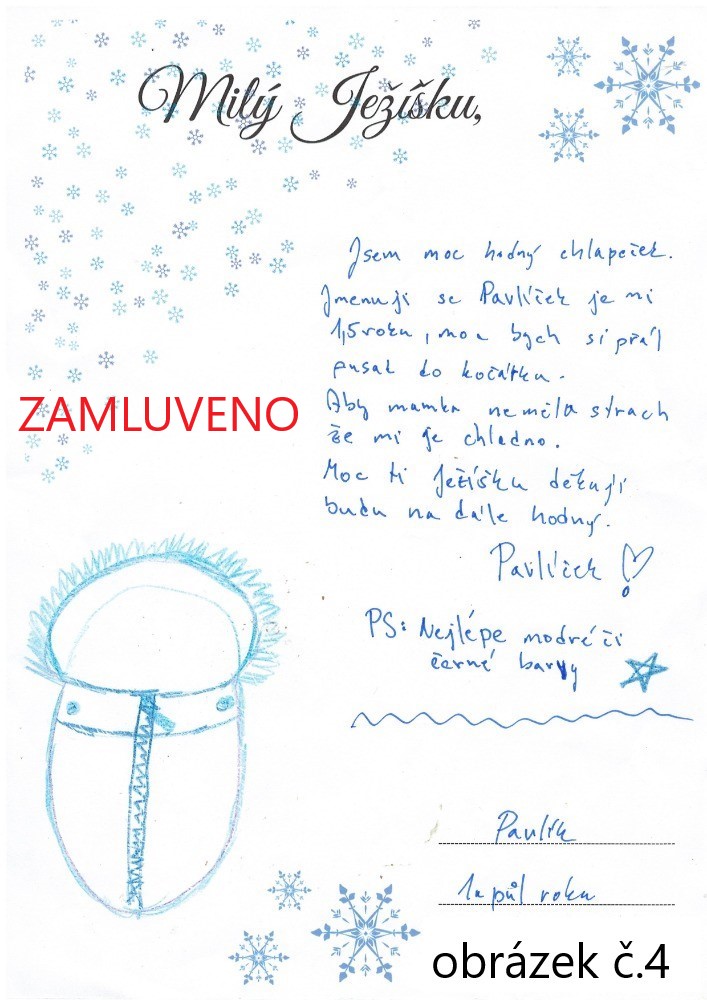 Milý Ježíšku,
Jsem moc hodný chlapeček.
Jmenuji se Pavlíček je mi
1,5 roku, moc bych si přál
fusak do kočárku.
Aby mamka neměla strach
že mi je chladno.
Moc ti Ježíšku děkuji
budu na dále hodný.
Pavlíček
PS: Nejlépe modré či
černé barvy
ZAMLUVENO
Pavlík
1 a půl roku
obrázek č.4